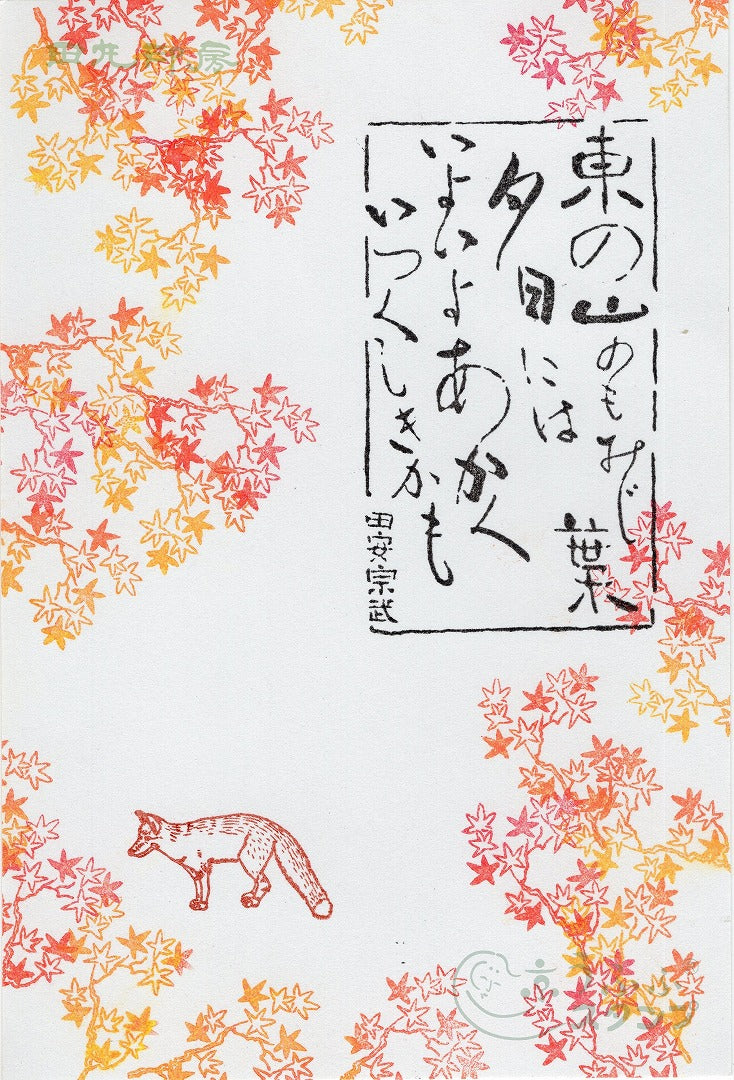 東の山のもみじ葉
夕日には
いよいよあかく
いつくしきかも
田安宗武